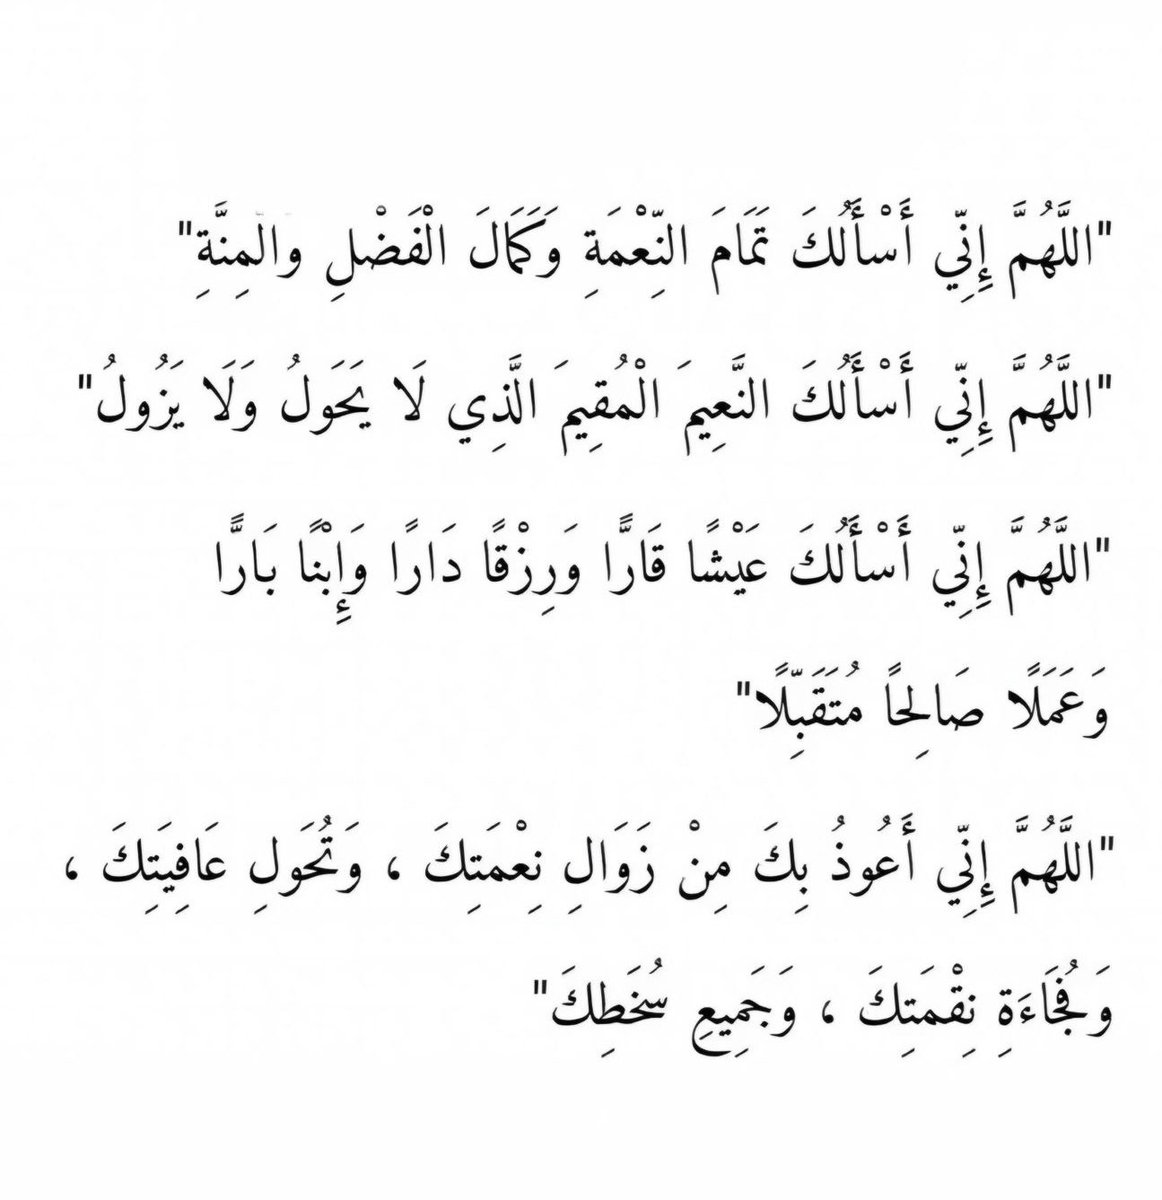 "اللَّهُمَّ إِنِّي أَسْأَلُكَ تَمَامَ النِّعْمَةِ وَكَمَالَ الْفَضْلِ والْمِنَّةِ"
"اللَّهُمَّ إِنِّي أَسْأَلُكَ النَّعِيمَ الْمُقِيمَ الَّذِي لَا يَحَولُ وَلَا يَزُولُ"
"اللَّهُمَّ إِنِّي أَسْأَلُكَ عَيْشًا قَارًّا وَرِزْقًا دَارًا وَإِبْنًا بَارًّا
وَعَمَلًا صَالِحًا مُتَقَبِّلًا"
"اللَّهُمَّ إِنِّي أَعُوذُ بِكَ مِنْ زَوَالِ نِعْمَتِكَ ، وَتُحَولِ عَافِيَتِكَ ،
وَفُجَاءَةِ نِقْمَتِكَ ، وَجَمِيعِ سُخَطِكَ"